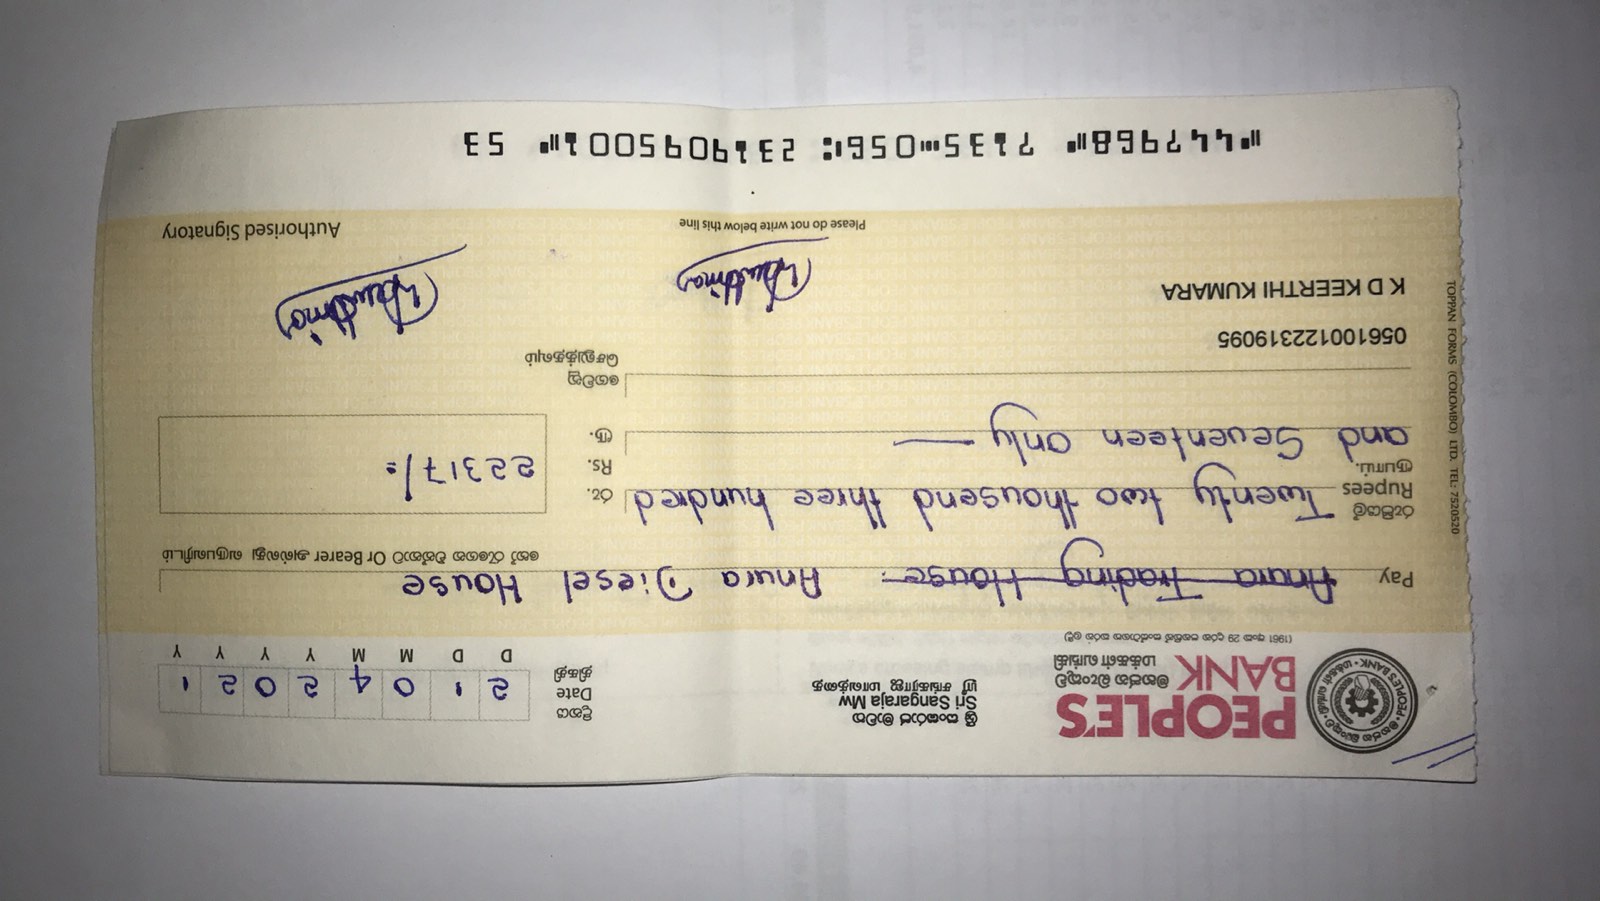 PEOPLE'S
BANK
මහජන බැංකුව
மக்கள் வங்கி
(1961 අංක 29 දරන පනතින් සංස්ථාපනය කරන ලදී)
ශ්‍රී සංඝරාජ මාවත
Sri Sangaraja Mw
ஸ்ரீ சங்கராஜ மாவத்தை
දිනය
Date
திகதி
2 1 0 4 2 0 2 1
D D M M Y Y Y Y
Pay Anura Trading House. Anura Diesel House
හෝ රැගෙන එන්නාට Or Bearer அல்லது வருபவரிடம்
රුපියල්
Rupees
ரூபாய்.
Twenty two thousend three hundred
and Seventeen only
රු.
Rs.
ரூ.
22317/=
ගෙවනු
செலுத்தவும்
056100122319095
K D KEERTHI KUMARA
Please do not write below this line
Authorised Signatory
⑈447968⑈ 7135⑉056⑆ 2319095001⑈ 53
TOPPAN FORMS (COLOMBO) LTD. TEL: 7520520